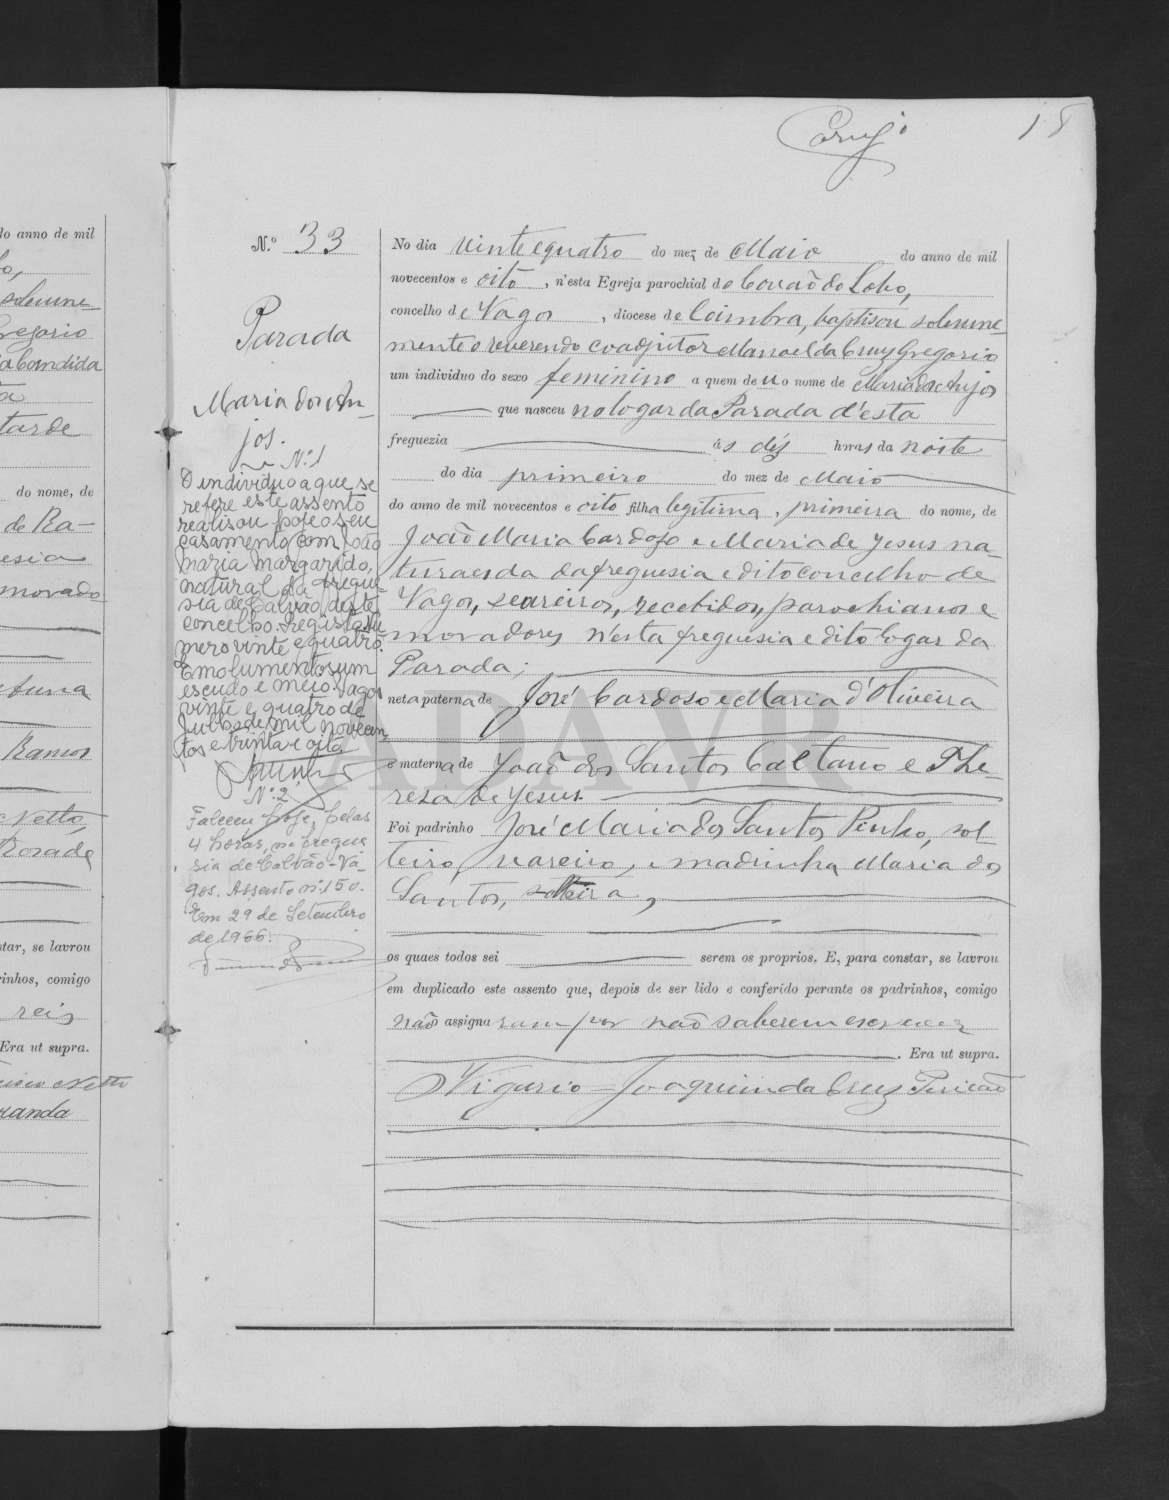 do anno de mil
solemne-
Gregorio
a Candida
ta
tarde
do nome, de
de Ra-
esia
morado-
Ramos
Netto,
star, se lavrou
rinhos, comigo
reis
Era ut supra.
Netto
randa
18
N.º 33
Parada
Maria dos An-
jos.
N.º 1
O individuo a que se
refere este assento
realisou hoje o seu
casamento com João
Maria Margarido,
natural da fregue-
sia de Calvão, deste
concelho. Registo nu-
mero vinte e quatro.
Emolumentos um
escudo e meio. Vagos
vinte e quatro de
Julho de mil novecen-
tos e trinta e oito
N.º 2
Faleceu hoje, pelas
4 horas, na fregue-
sia de Calvão-Va-
gos. Assento n.º 150.
Em 29 de Setembro
de 1966.
No dia vinte e quatro do mez de Maio do anno de mil
novecentos e oito, n'esta Egreja parochial de Covão do Lobo,
concelho de Vagos, diocese de Coimbra, baptisou solemne-
mente o reverendo coadjutor Manoel da Cruz Gregorio
um individuo do sexo feminino a quem deu o nome de Maria dos Anjos
que nasceu no logar da Parada d'esta
freguezia ás déz horas da noite
do dia primeiro do mez de Maio
do anno de mil novecentos e oito filha legitima, primeira do nome, de
João Maria Cardozo e Maria de Jesus na-
turaes da da freguesia e dito concelho de
Vagos, seareiros, recebidos, parochianos e
moradores n'esta freguesia e dito logar da
Parada;
neta paterna de José Cardoso e Maria d'Oliveira
e materna de João dos Santos Caetano e The-
reza de Jesus.
Foi padrinho José Maria dos Santos Pinho, sol-
teiro, seareiro, e madrinha Maria dos
Santos, solteira,
os quaes todos sei serem os proprios. E, para constar, se lavrou
em duplicado este assento que, depois de ser lido e conferido perante os padrinhos, comigo
não assignaram por não saberem escrever
. Era ut supra.
O Vigario Joaquim da Cruz